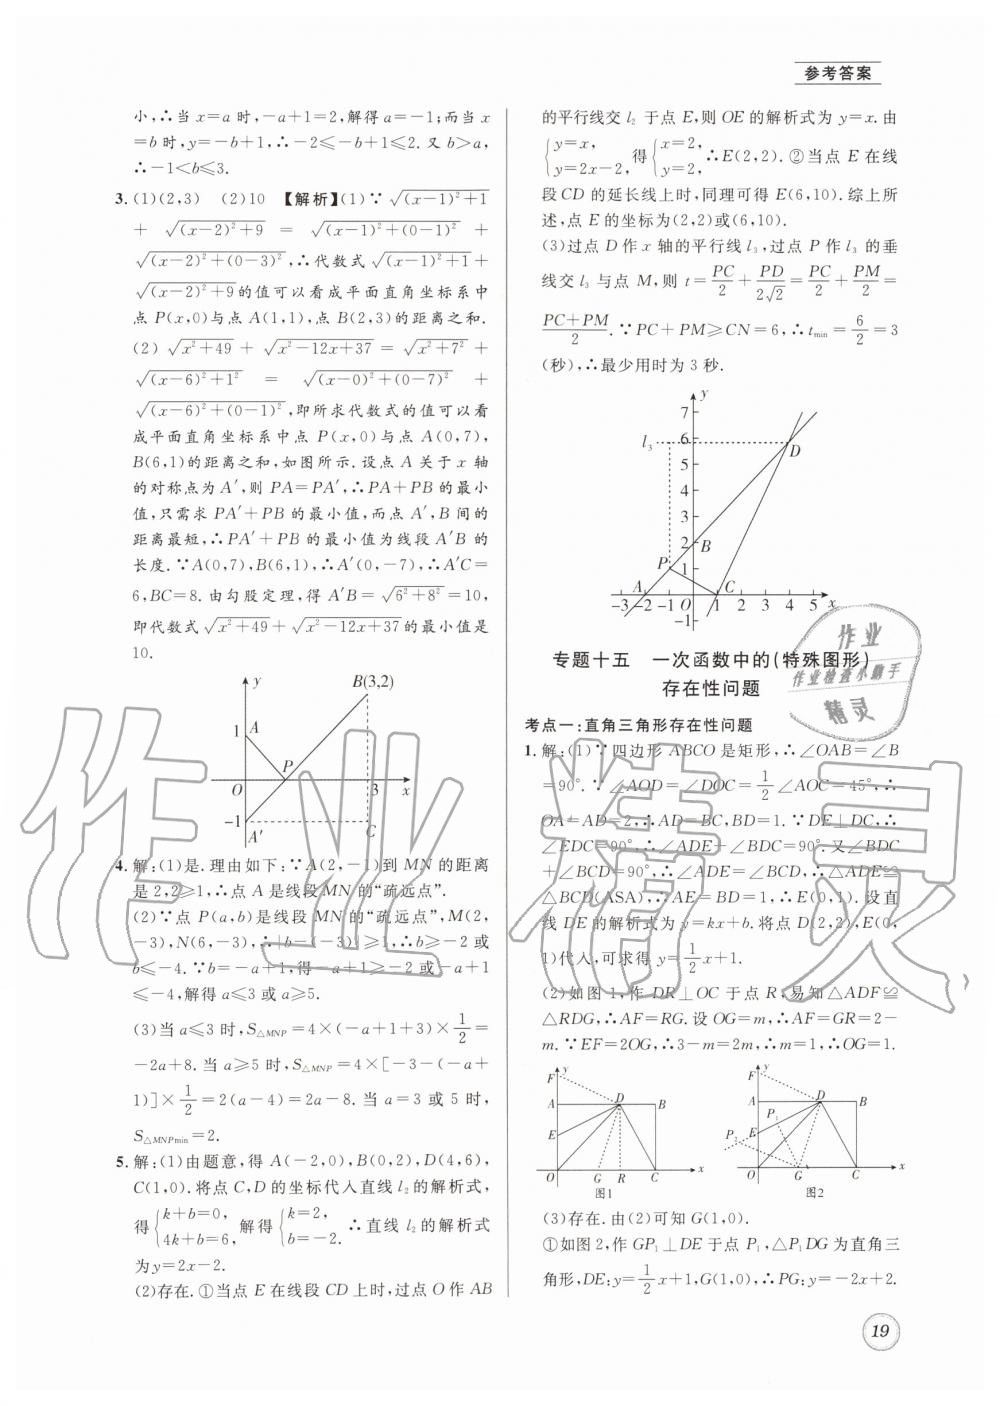 参考答案
小,∴当 x=a 时,-a+1=2,解得 a=-1;而当 x
=b 时,y=-b+1,∴-2≤-b+1≤2.又 b>a,
∴-1<b≤3.
3. (1)(2,3) (2)10 【解析】(1)∵√((x-1)²+1)
+ √((x-2)²+9) = √((x-1)²+(0-1)²) +
√((x-2)²+(0-3)²),∴代数式√((x-1)²+1)+
√((x-2)²+9)的值可以看成平面直角坐标系中
点 P(x,0)与点 A(1,1),点 B(2,3)的距离之和.
(2) √(x²+49) + √(x²-12x+37) = √(x²+7²) +
√((x-6)²+1²) = √((x-0)²+(0-7)²) +
√((x-6)²+(0-1)²),即所求代数式的值可以看
成平面直角坐标系中点 P(x,0)与点 A(0,7),
B(6,1)的距离之和,如图所示.设点 A 关于 x 轴
的对称点为 A′,则 PA=PA′,∴PA+PB 的最小
值,只需求 PA′+PB 的最小值,而点 A′,B 间的
距离最短,∴PA′+PB 的最小值为线段 A′B 的
长度.∵A(0,7),B(6,1),∴A′(0,-7),∴A′C
=6,BC=8.由勾股定理,得 A′B=√(6²+8²)=10,
即代数式√(x²+49)+√(x²-12x+37)的最小值是
10.
y
B(3,2)
1
A
P
O
3
x
-1
A′
C
4. 解:(1)是.理由如下:∵A(2,-1)到 MN 的距离
是 2,2≥1,∴点 A 是线段 MN 的“疏远点”.
(2)∵点 P(a,b)是线段 MN 的“疏远点”,M(2,
-3),N(6,-3),∴|b-(-3)|≥1,∴b≥-2 或
b≤-4.∵b=-a+1,得-a+1≥-2 或-a+1
≤-4,解得 a≤3 或 a≥5.
(3)当 a≤3 时,S△MNP=4×(-a+1+3)×1/2=
-2a+8.当 a≥5 时,S△MNP=4×[-3-(-a+
1)]×1/2=2(a-4)=2a-8.当 a=3 或 5 时,
S△MNPmin=2.
5. 解:(1)由题意,得 A(-2,0),B(0,2),D(4,6),
C(1,0).将点 C,D 的坐标代入直线 l₂的解析式,
得{k+b=0, 4k+b=6, 解得{k=2, b=-2. ∴直线 l₂的解析式
为 y=2x-2.
(2)存在.①当点 E 在线段 CD 上时,过点 O 作 AB
的平行线交 l₂ 于点 E,则 OE 的解析式为 y=x.由
{y=x, y=2x-2, 得{x=2, y=2, ∴E(2,2).②当点 E 在线
段 CD 的延长线上时,同理可得 E(6,10).综上所
述,点 E 的坐标为(2,2)或(6,10).
(3)过点 D 作 x 轴的平行线 l₃,过点 P 作 l₃ 的垂
线交 l₃ 与点 M,则 t=PC/2+PD/2√2=PC/2+PM/2=
(PC+PM)/2.∵PC+PM≥CN=6,∴tmin=6/2=3
(秒),∴最少用时为 3 秒.
y
7
l₃
6
D
5
4
3
2
B
P
1
A
C
-3 -2 -1 O 1 2 3 4 5 x
-1
专题十五 一次函数中的(特殊图形)
存在性问题
考点一:直角三角形存在性问题
1. 解:(1)∵四边形 ABCO 是矩形,∴∠OAB=∠B
=90°.∵∠AOD=∠DOC=1/2∠AOC=45°,∴
OA=AD=2,∴AD=BC,BD=1.∵DE⊥DC,∴
∠EDC=90°,∴∠ADE+∠BDC=90°,又∠BDC
+∠BCD=90°,∴∠ADE=∠BCD,∴△ADE≌
△BCD(ASA),∴AE=BD=1,∴E(0,1).设直
线 DE 的解析式为 y=kx+b.将点 D(2,2),E(0,
1)代入,可求得 y=1/2x+1.
(2)如图 1,作 DR⊥OC 于点 R,易知△ADF≌
△RDG,∴AF=RG.设 OG=m,∴AF=GR=2-
m.∵EF=2OG,∴3-m=2m,∴m=1,∴OG=1.
F y
A D B
E
O G R C x
图1
F y
A D B
P₁
P₂ E
O G C x
图2
(3)存在.由(2)可知 G(1,0).
①如图 2,作 GP₁⊥DE 于点 P₁,△P₁DG 为直角三
角形,DE:y=1/2x+1,G(1,0),∴PG:y=-2x+2.
19
作业
作业检查小助手
精灵
作业精灵